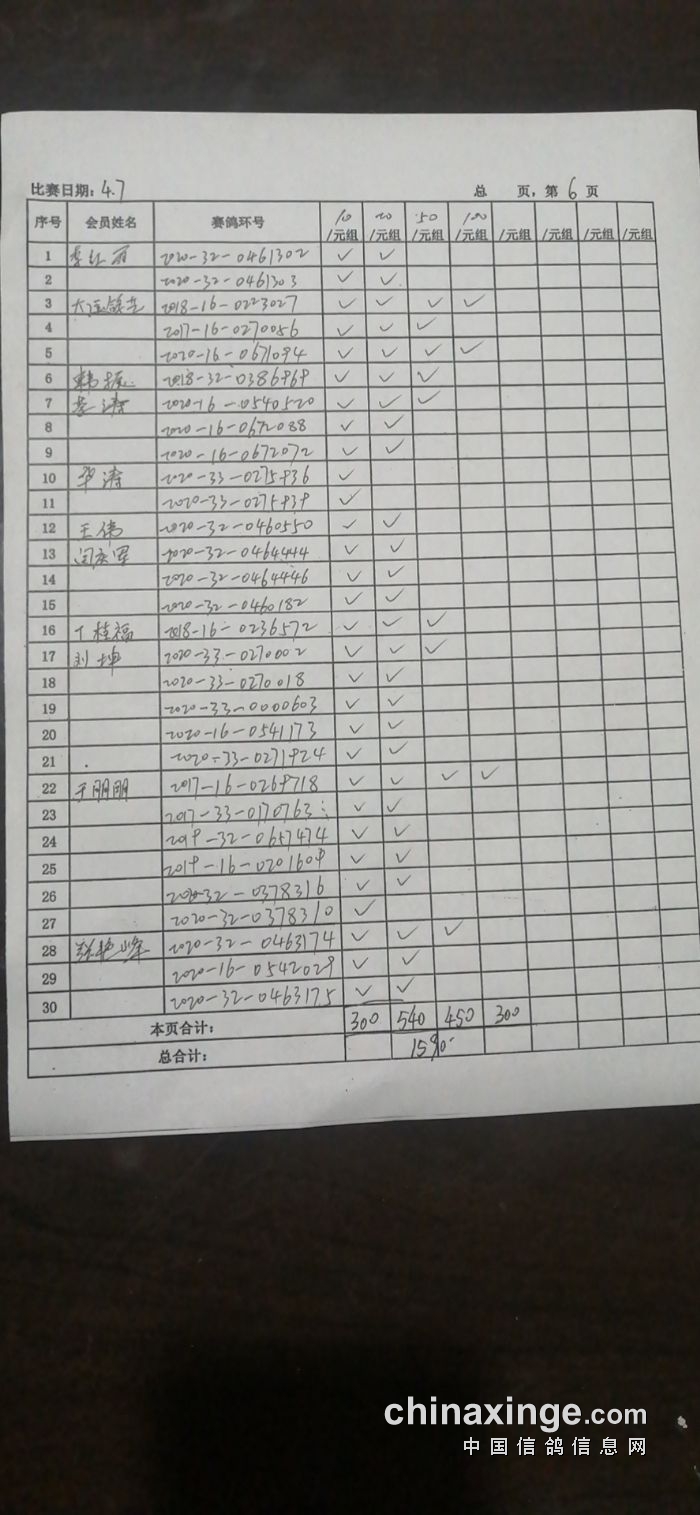 比赛日期: 4.7 总 页, 第 6 页
序号 会员姓名 赛鸽环号 10/元组 20/元组 50/元组 100/元组 /元组 /元组 /元组 /元组
1 李红丽 2020-32-0461302 ✓ ✓
2 2020-32-0461303 ✓ ✓
3 2018-16-0223027 ✓ ✓ ✓ ✓
4 2017-16-0270056 ✓ ✓ ✓
5 2020-16-0671094 ✓ ✓ ✓ ✓
6 韩振 2018-32-0386969 ✓ ✓ ✓
7 李涛 2020-16-0540520 ✓ ✓ ✓
8 2020-16-0672088 ✓ ✓
9 2020-16-0672072 ✓ ✓
10 华涛 2020-33-0275936 ✓
11 2020-33-0275939 ✓
12 王伟 2020-32-0460550 ✓ ✓
13 闫庆军 2020-32-0464444 ✓ ✓
14 2020-32-0464446 ✓ ✓
15 2020-32-0460182 ✓ ✓
16 丁桂福 2018-16-0236572 ✓ ✓ ✓
17 刘坤 2020-33-0270002 ✓ ✓ ✓
18 2020-33-0270018 ✓ ✓
19 2020-33-0000603 ✓ ✓
20 2020-16-0541173 ✓ ✓
21 2020-33-0271924 ✓ ✓
22 于朋朋 2017-16-0269718 ✓ ✓ ✓ ✓
23 2017-33-0170763 ✓ ✓
24 2019-32-0657474 ✓ ✓
25 2019-16-0201609 ✓ ✓
26 2020-32-0378316 ✓ ✓
27 2020-32-0378310 ✓
28 张艳峰 2020-32-0463174 ✓ ✓ ✓
29 2020-16-0542029 ✓ ✓
30 2020-32-0463175 ✓ ✓
本页合计: 300 540 450 300
总合计: 1590
chinaxinge.com
中国信鸽信息网